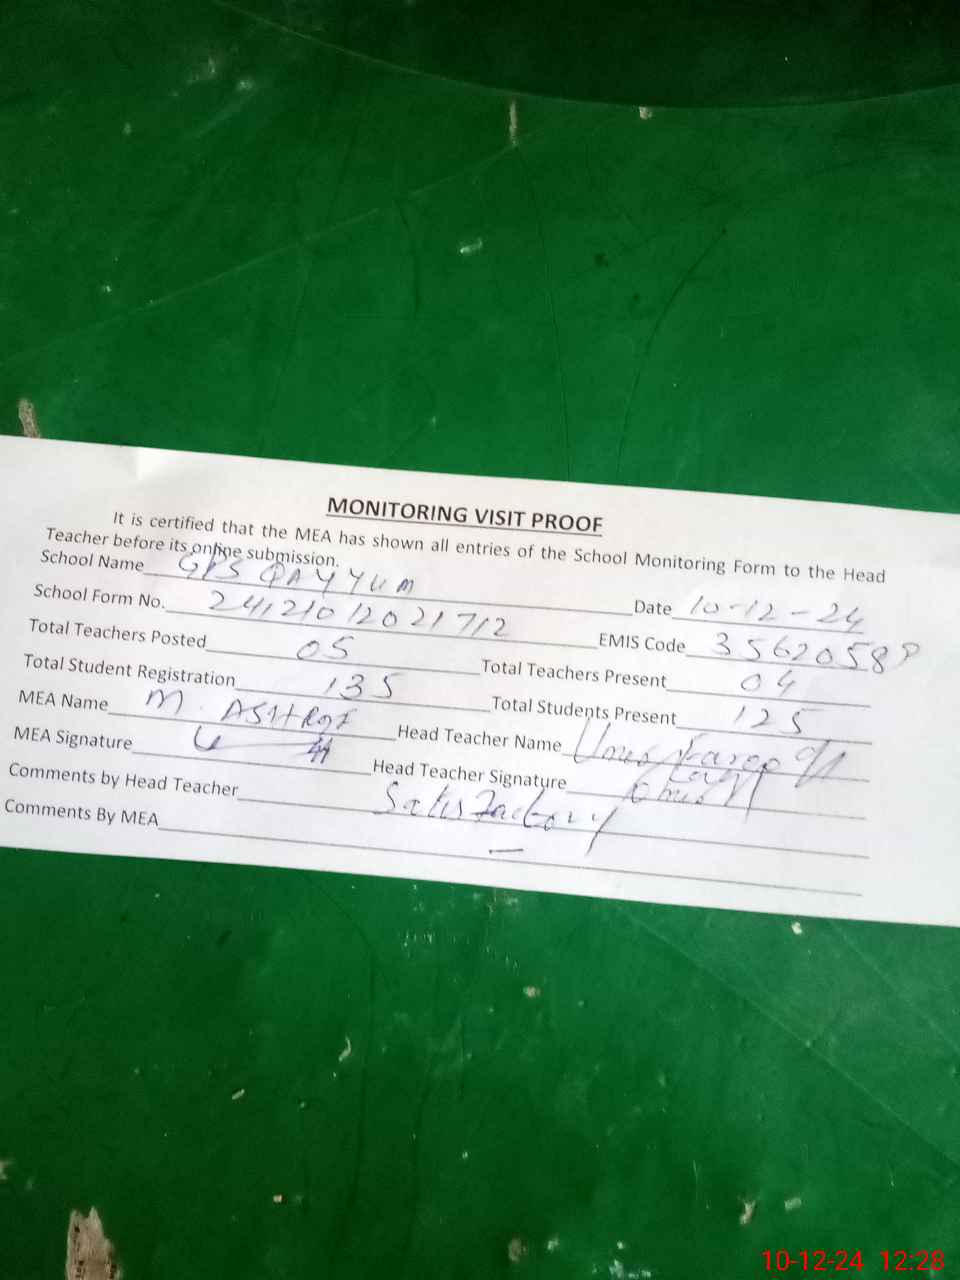 MONITORING VISIT PROOF
It is certified that the MEA has shown all entries of the School Monitoring Form to the Head
Teacher before its online submission.
School Name GPS QAYYUM Date 10-12-24
School Form No. 24121012021712 EMIS Code
Total Teachers Posted 05 Total Teachers Present 04
Total Student Registration 135 Total Students Present 125
MEA Name M. ASHRAF Head Teacher Name Farooq
MEA Signature Head Teacher Signature
Comments by Head Teacher Satisfactory
Comments By MEA —
10-12-24 12:28